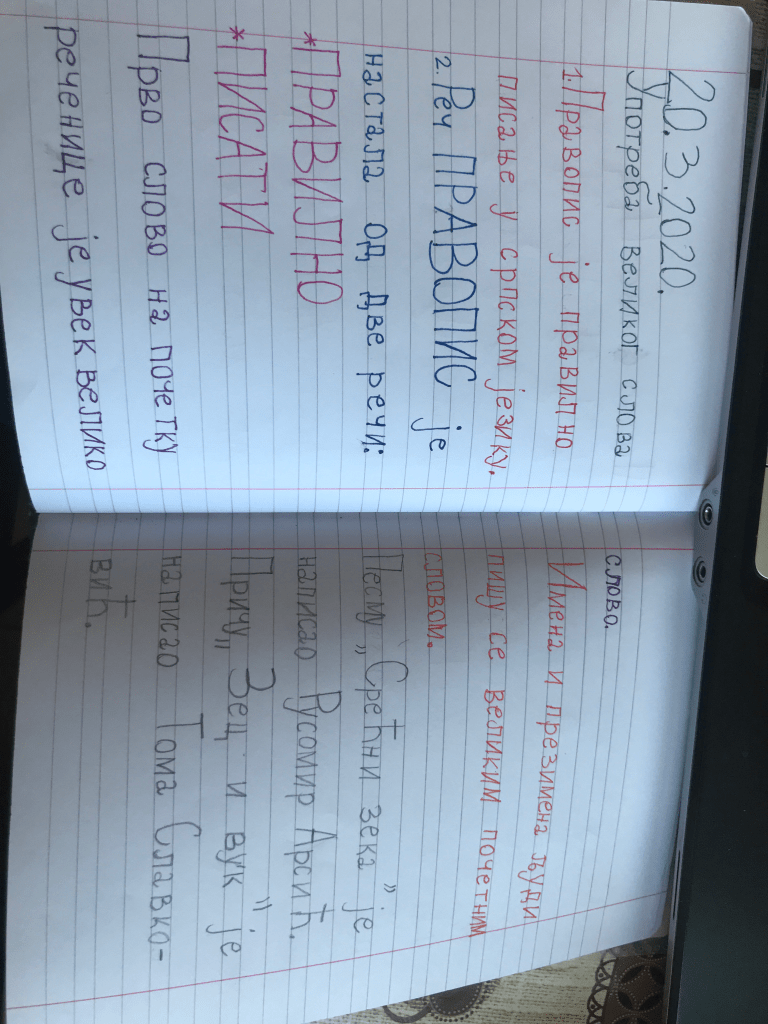 20.3.2020.
Употреба великог слова
1. Правопис је правилно
писање у српском језику.
2. Реч ПРАВОПИС је
настала од две речи:
*ПРАВИЛНО
*ПИСАТИ
Прво слово на почетку
реченице је увек велико
слово.
Имена и презимена људи
пишу се великим почетним
словом.
Песму „Срећни зека” је
написао Русомир Арсић.
Причу „Зец и вук” је
написао Тома Славко-
вић.